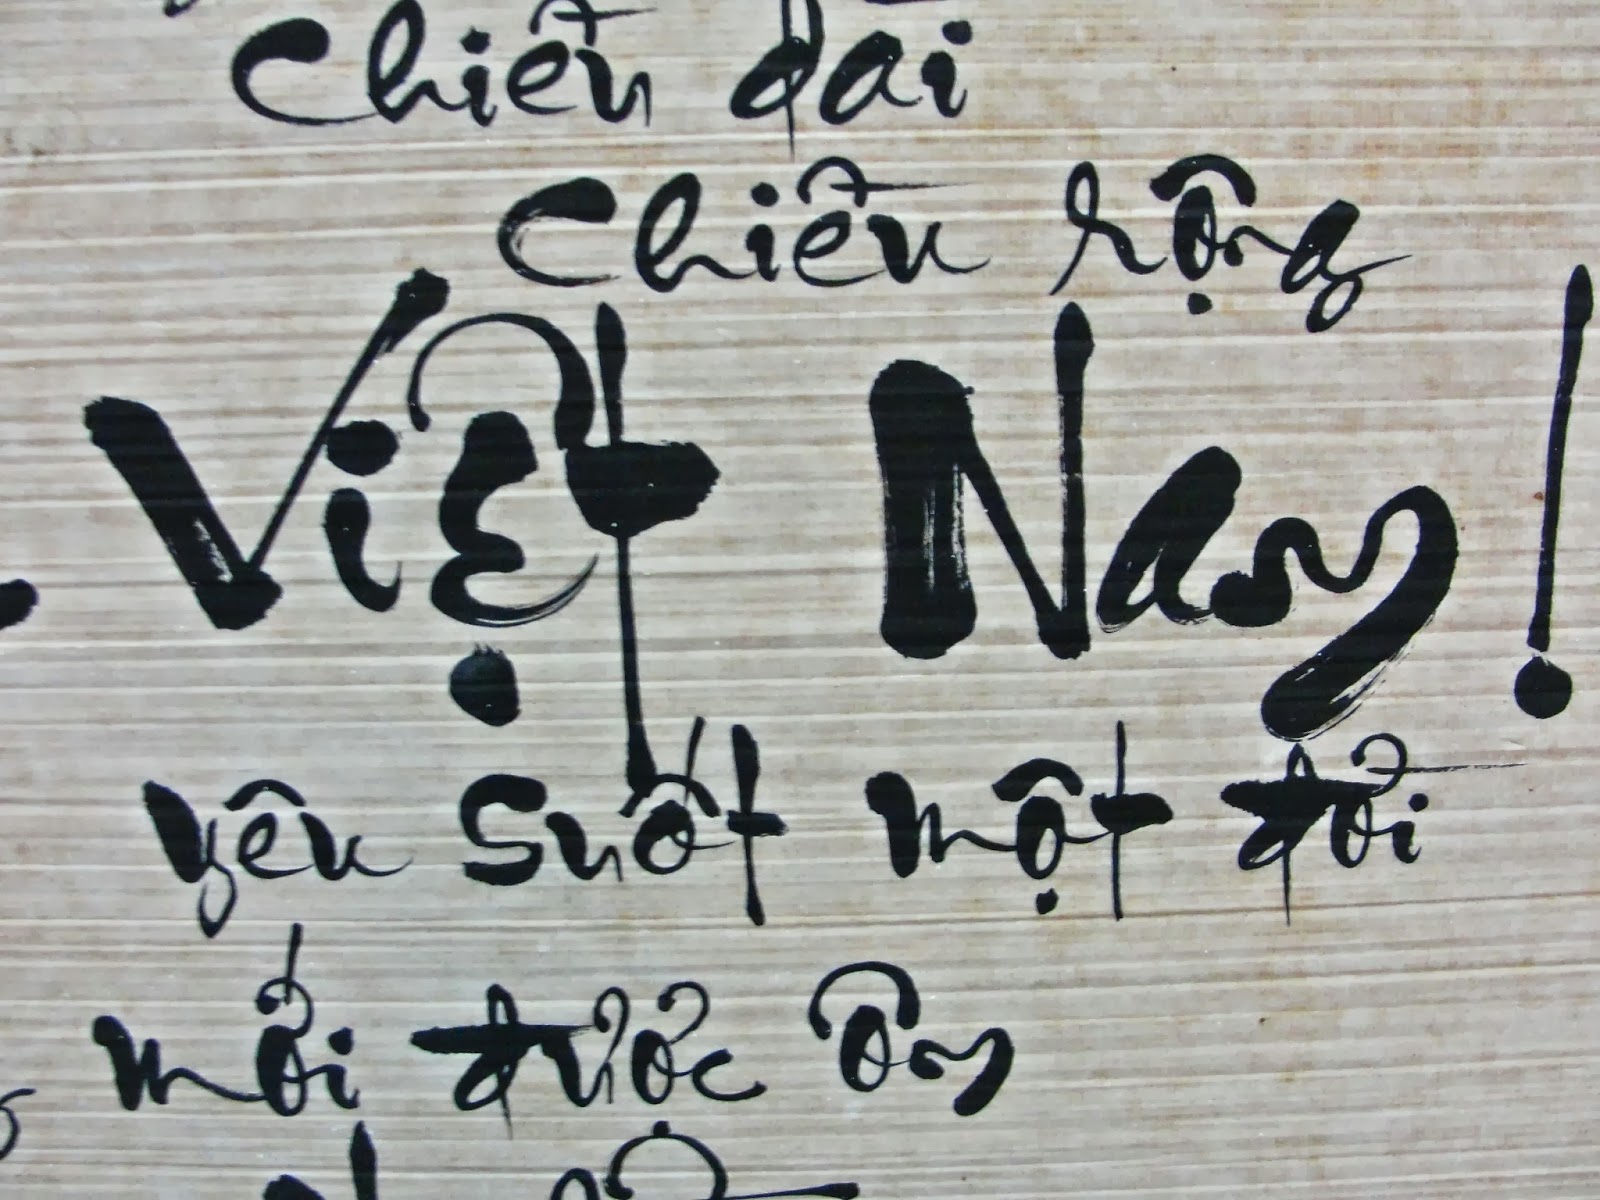 Chiều dài
Chiều rộng
Việt Nam!
yêu suốt một đời
mới được ôm